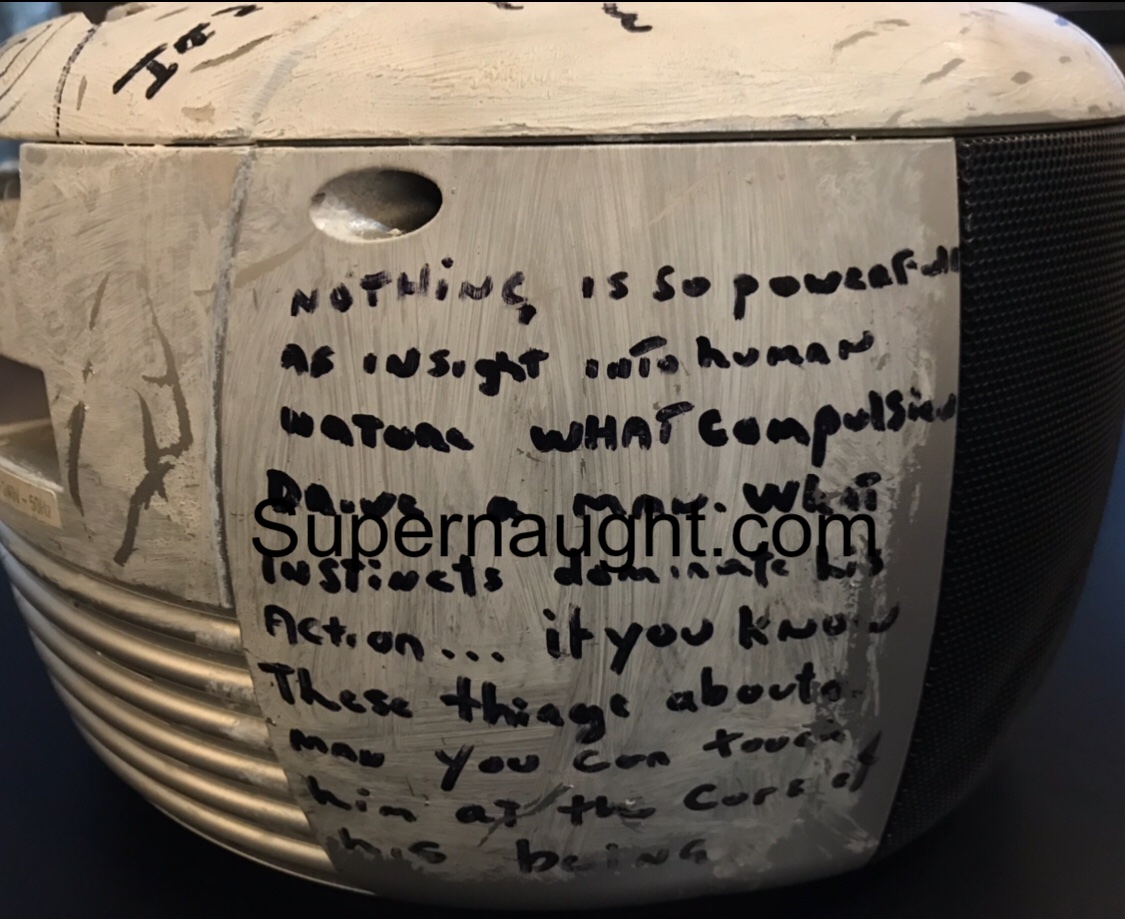 NOTHiNG is so powerfull
As insight into human
NaTure WHAT Compulsion
Drive a man. What
Supernaught.com
Instincts dominate his
Action... if you know
These things about a
man you can touch
him at the Core of
his being